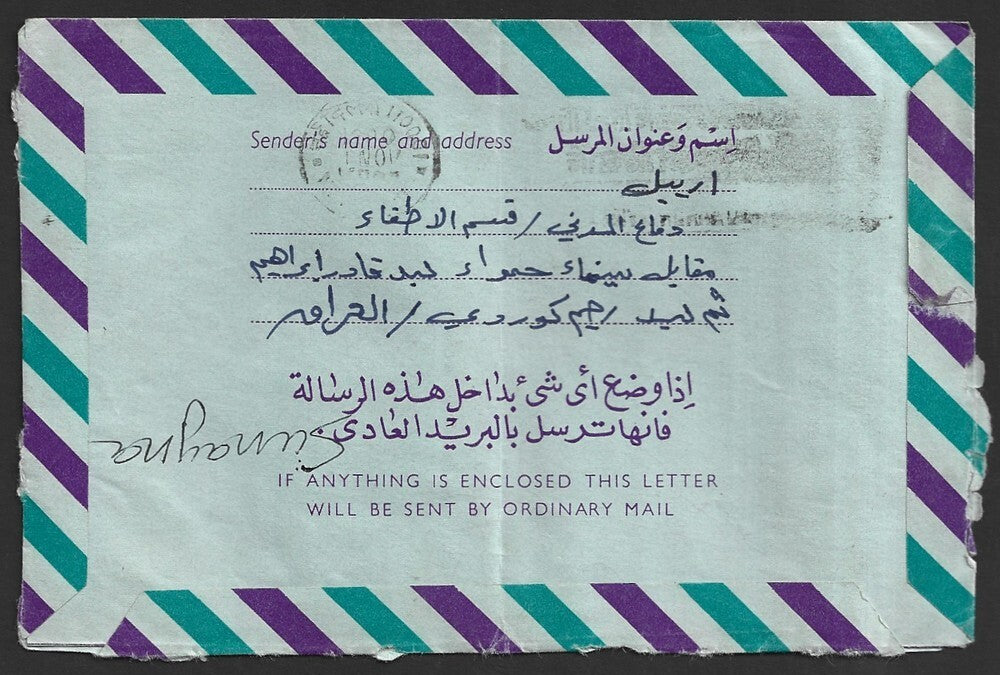 Sender's name and address اِسْم وَعنوان المرسل
اربيل
دفاع المدني / قسم الاطفاء
مقابل سينماء حمراء لبد قادر ابراهيم
ثم لبد رحيم كوردي / العراق
اِذا وضع أى شئ بداخل هٰذه الرسالة
فانها ترسل بالبريد العادى.
Sunayna
IF ANYTHING IS ENCLOSED THIS LETTER
WILL BE SENT BY ORDINARY MAIL